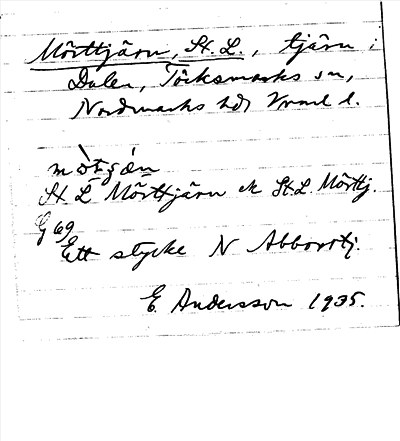 Mörttjärn, St. L., tjärn i
Dalen, Töcksmarks sn,
Nordmarks hd, Vrml l.
St L Mörttjärn ek St. L. Mörttj.
G 69
Ett stycke N Abborrtj.
E. Andersson 1935.